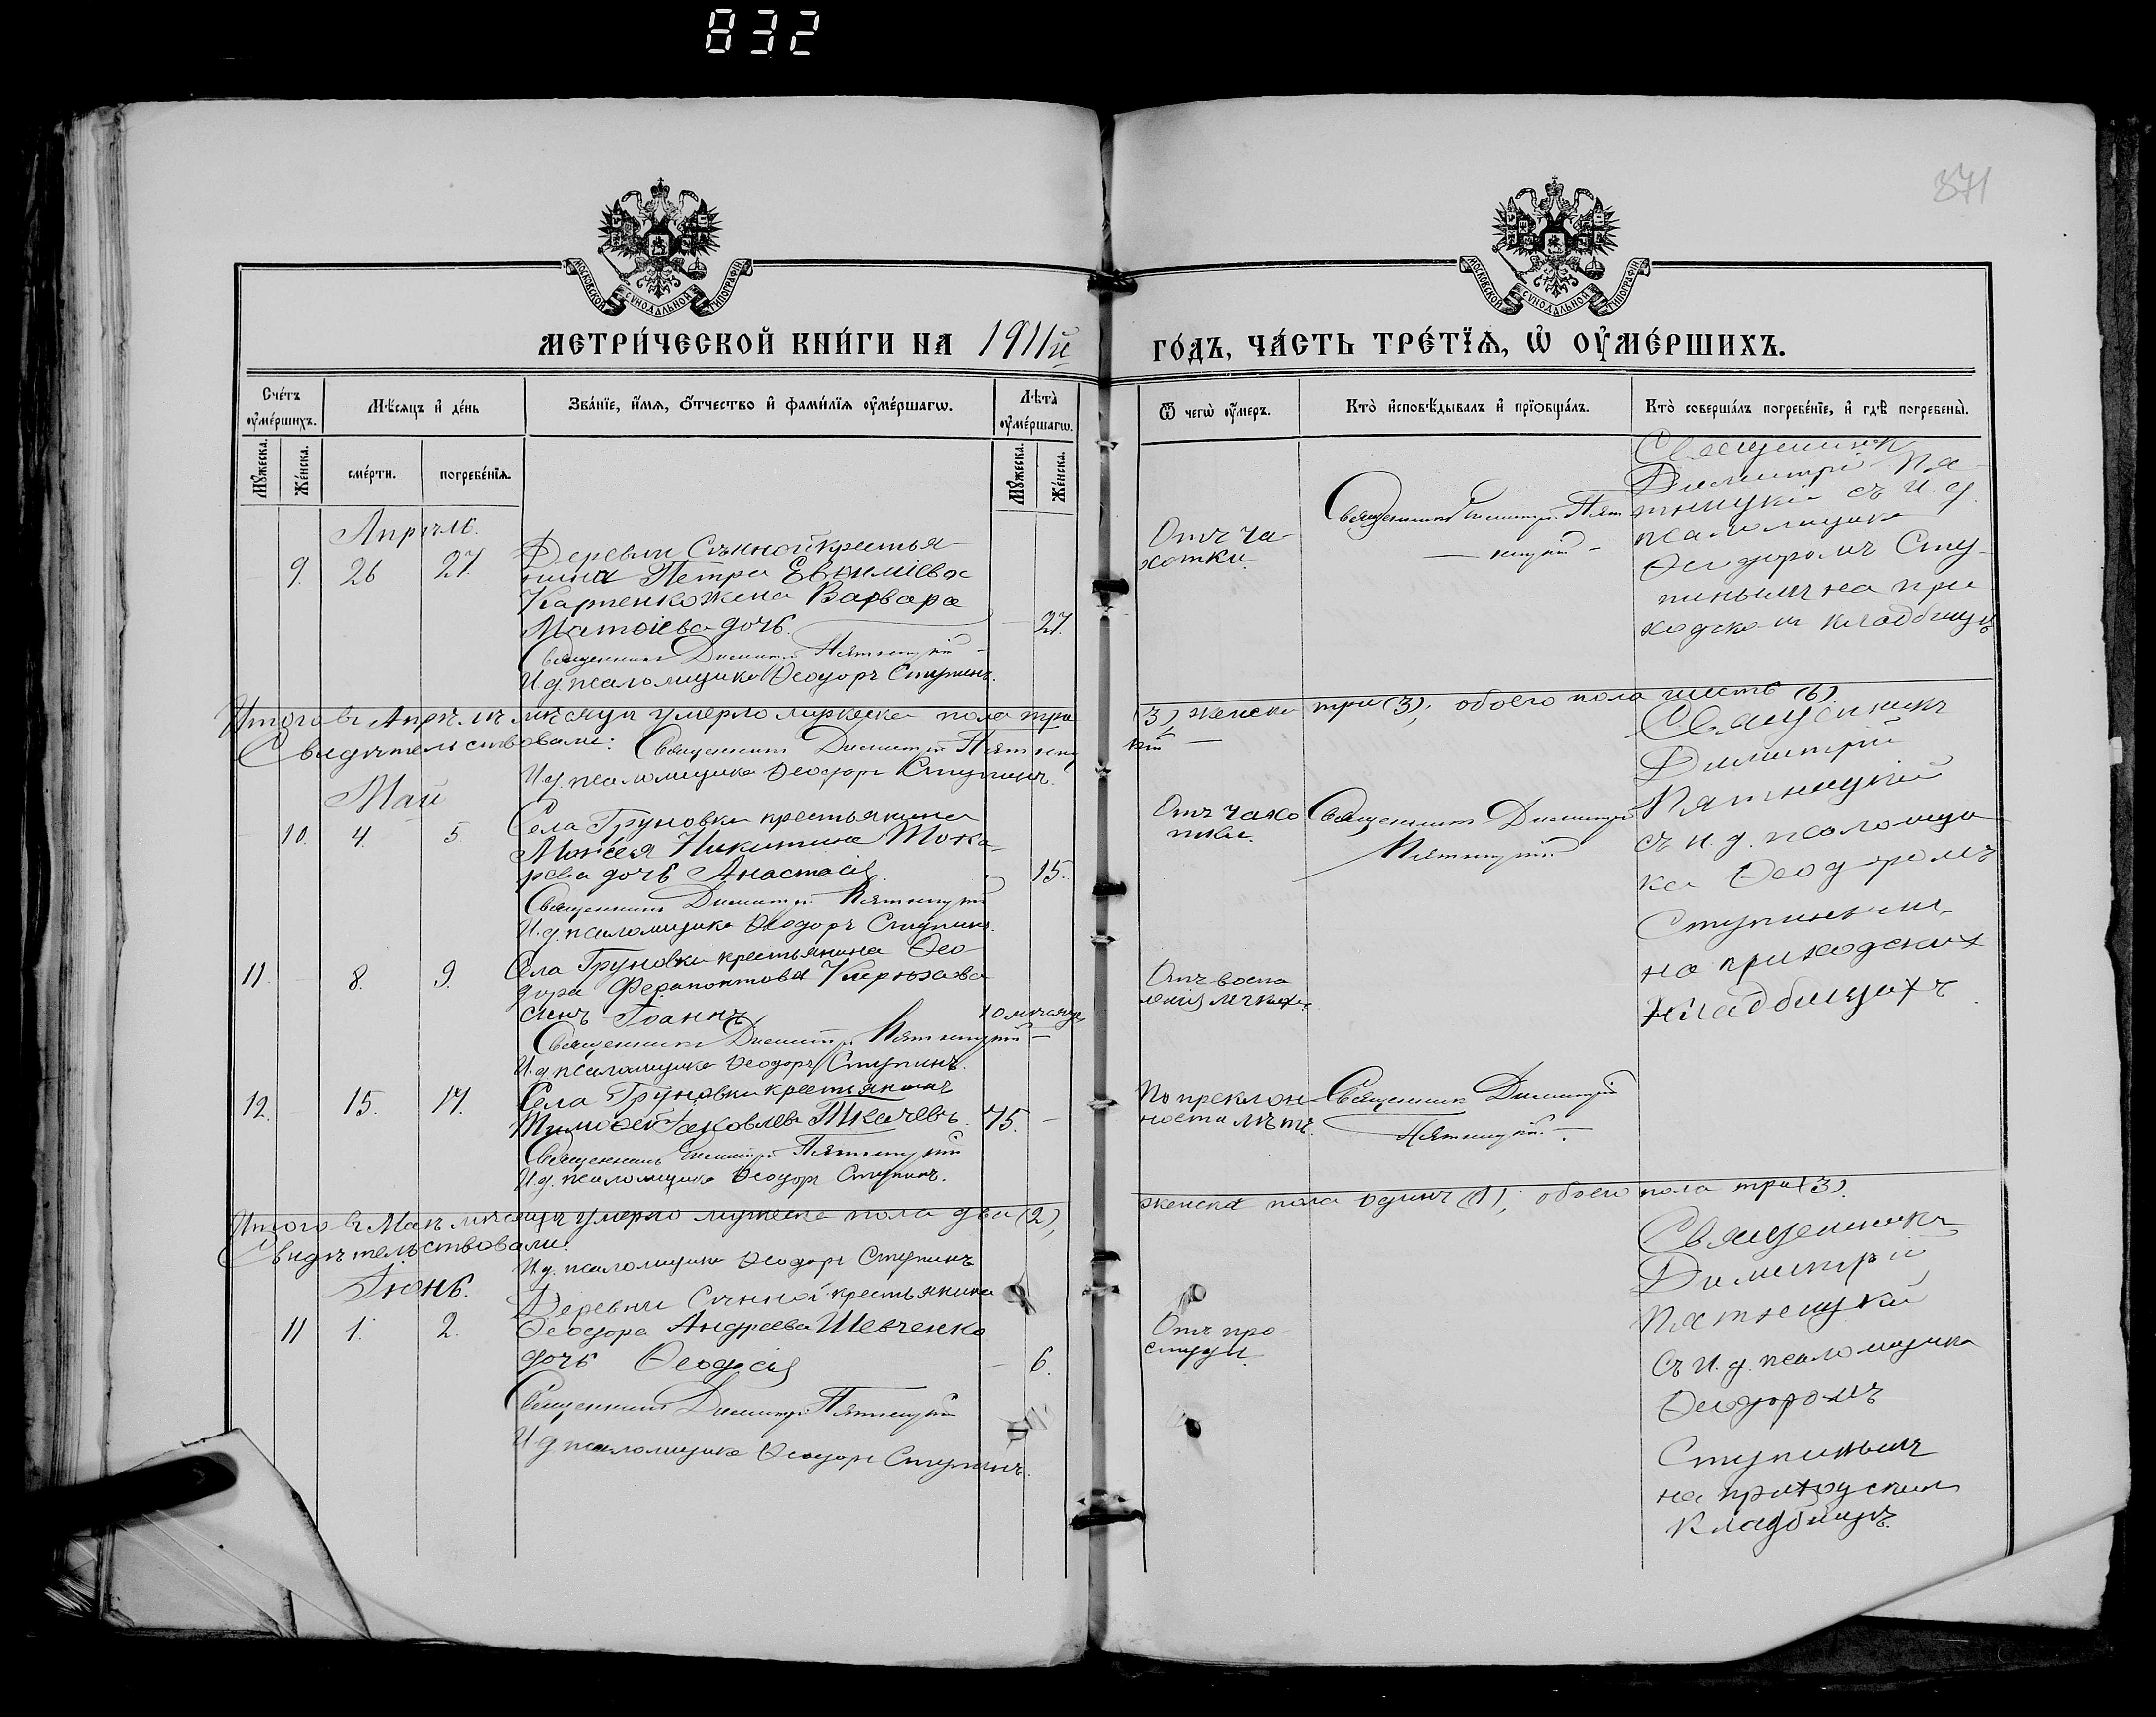 832
371
МОСКОВСКОЙ СѴНОДАЛЬНОЙ ТИПОГРАФІИ
МОСКОВСКОЙ СѴНОДАЛЬНОЙ ТИПОГРАФІИ
МЕТРИ́ЧЕСКОЙ КНИ́ГИ НА 1911й
ГО́ДЪ, ЧА́СТЬ ТРЕ́ТЇѦ, Ѡ҆ ОУ҆МЕ́РШИХЪ.
Сче́тъ оу҆ме́ршихъ.
Мѣ́сѧцъ и҆ де́нь
Зва́нїе, и҆́мѧ, ѻ҆́тчество и҆ фами́лїѧ оу҆ме́ршагѡ.
Лѣ́та̀ оу҆ме́ршагѡ.
Ѿ чегѡ̀ оу҆́меръ.
Кто̀ и҆сповѣ́дывалъ и҆ прїѡбща́лъ.
Кто̀ соверша́лъ погребе́нїе, и҆ гдѣ̀ погребены̀.
Мꙋ́жеска.
Же́нска.
сме́рти.
погребе́нїѧ.
Мꙋ́жеска.
Же́нска.
Апрѣль.
9. 26 27.
Деревни Сѣнной крестья-
нина Петра Евѳиміева
Карпенко жена Варвара
Матѳіева дочь. 27.
Священникъ Димитрій Пятницкій
И.д. псаломщика Ѳеодоръ Ступинъ.
Отъ ча-
хотки.
Священникъ Димитрій Пят
ницкій
Священникъ
Димитрій Пя-
тницкій съ и. д.
псаломщика
Ѳеодоромъ Сту-
пинымъ на при
ходском кладбищѣ
Итого въ Апрѣлѣ мѣсяцѣ умерло мужеска пола три
(3), женска три (3); обоего пола шесть (6).
Свидѣтельствовали: Священникъ Димитрій Пятниц
кій
И.д. псаломщика Ѳеодоръ Ступинъ.
Май
10. 4. 5.
Села Груновки крестьянина
Моѵсея Никитина Тока-
рева дочь Анастасія. 15.
Священникъ Димитрій Пятницкій
И.д. псаломщика Ѳеодоръ Ступинъ.
Отъ чахо
тки.
Священникъ Димитрій
Пятницкій
Священникъ
Димитрій
Пятницкій
съ и. д. псаломщи
ка Ѳеодоромъ
Ступинымъ
на приходских
кладбищахъ.
11. 8. 9.
Села Груновки крестьянина Ѳео
дора Ферапонтова
сынъ Іоаннъ 10 мѣсяцъ
Священникъ Димитрій Пятницкій
И.д. псаломщика Ѳеодоръ Ступинъ.
Отъ воспа
ленія легкихъ.
12. 15. 17.
Села Груновки крестьянинъ
Тимоѳей Іаковлевъ Ткачевъ. 75.
Священникъ Димитрій Пятницкій
И.д. псаломщика Ѳеодоръ Ступинъ.
По преклон-
ности лѣтъ.
Священникъ Димитрій
Пятницкій
Итого въ Маѣ мѣсяцѣ умерло мужеска пола два (2),
женска пола одинъ (1); обоего пола три (3).
Свидѣтельствовали:
И.д. псаломщика Ѳеодоръ Ступинъ
Іюнь.
11 1. 2.
Деревни Сѣнной крестьянина
Ѳеодора Андреева Шевченко
дочь Ѳеодосія 6.
Священникъ Димитрій Пятницкій
И.д. псаломщика Ѳеодоръ Ступинъ.
Отъ про-
студы.
Священникъ
Димитрій
Пятницкій
съ и.д. псаломщика
Ѳеодоромъ
Ступинымъ
на приходском
кладбищѣ.